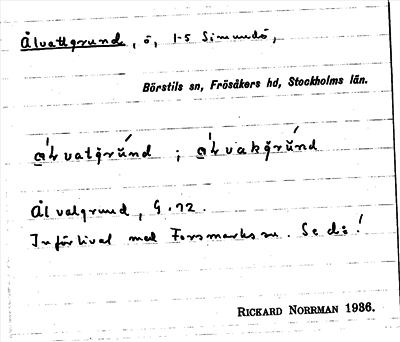 Ålvattgrund, ö, 1-5 Simundö,
Börstils sn, Frösåkers hd, Stockholms län.
a̍lvatgrúnd ; a̍lvakgrúnd
Ålvalgrund, G.72.
Införlivat med Forsmarks sn. Se d:o!
RICKARD NORRMAN 1936.